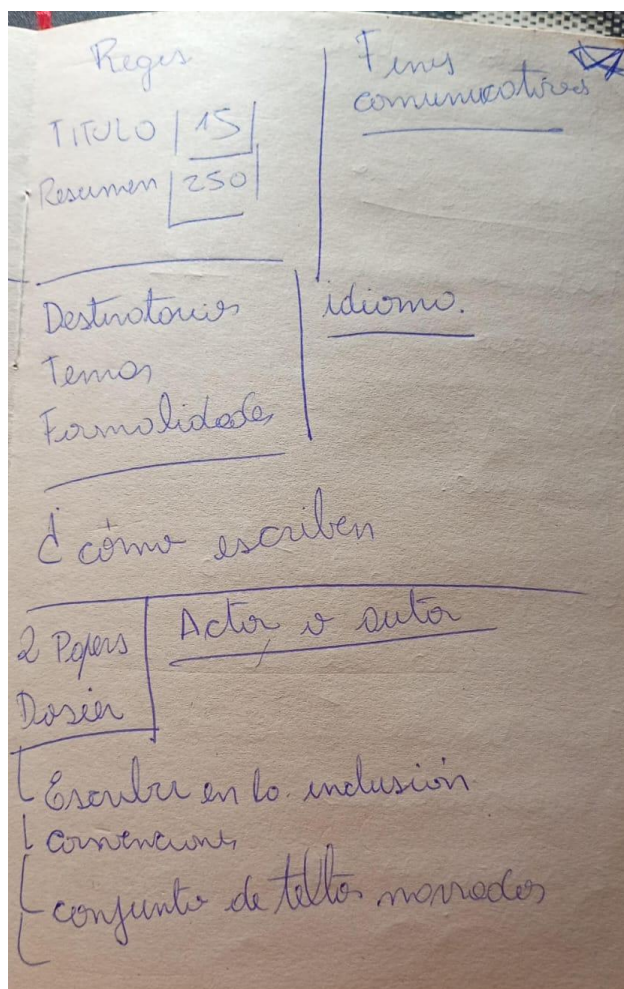 Reges
TITULO | 15 |
Resumen | 250 |
Fines
comunicativos
Destinatarios
Temas
Formalidades
idioma.
¿cómo escriben
2 Papers
Dosier
Actor o autor
Escribir en la inclusión
convenciones
conjunto de textos narrados